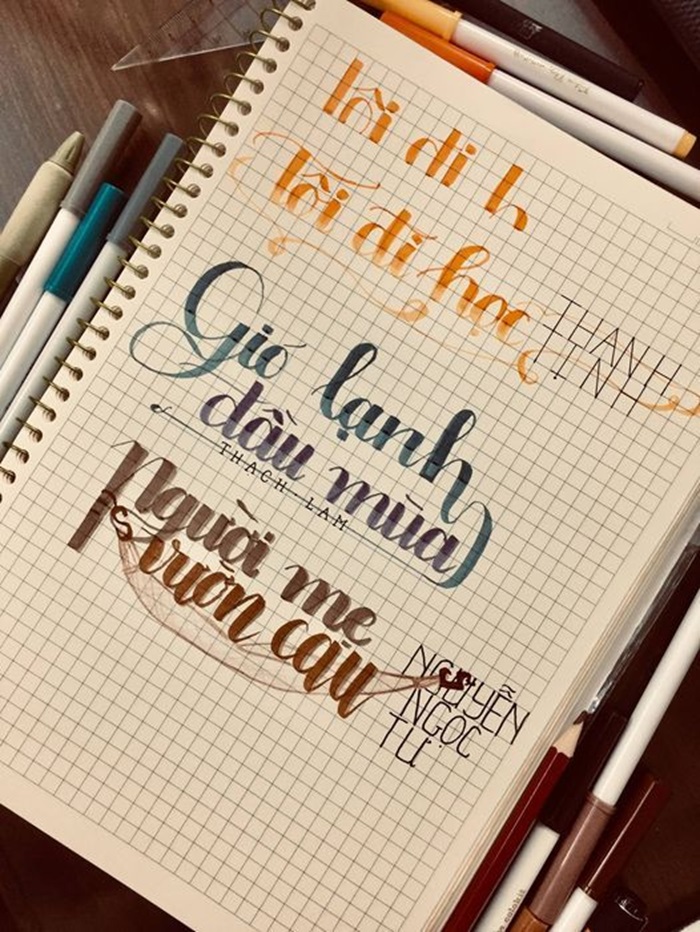 lời đi h
lối đi học
THANH
TỊNH
Gió lạnh
đầu mùa
THẠCH LAM
Người mẹ
vườn cau
NGUYỄN
NGỌC
TƯ